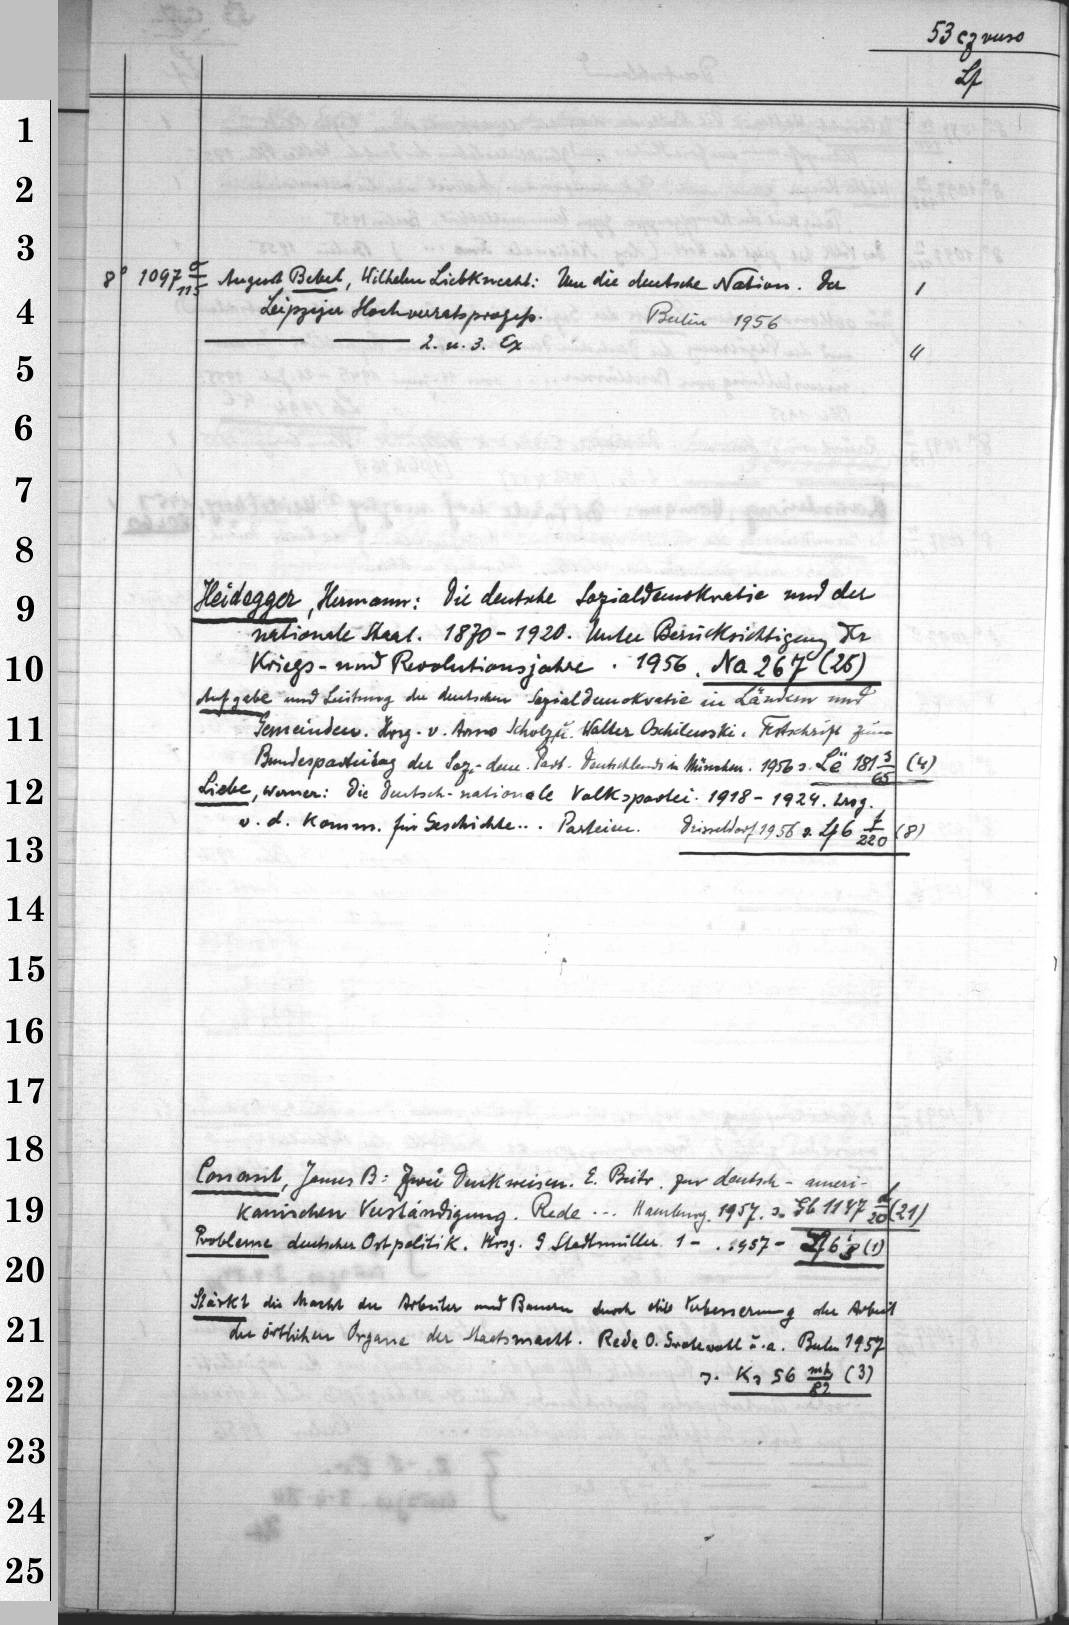 53
Lf
1
2
3
8° 1097 σ/115 August Bebel, Wilhelm Liebknecht: Um die deutsche Nation. Der 1
4 Leipziger Hochverratsprozess. Berlin 1956
2. u. 3. Ex "
5
6
7
8
9 Heidegger, Hermann: Die deutsche Sozialdemokratie und der
nationale Staat. 1870-1920. Unter Berücksichtigung der
10 Kriegs- und Revolutionsjahre. 1956. Na 267 (25)
Aufgabe und Leistung der deutschen Sozialdemokratie in Ländern und
11 Gemeinden. Hrsg. v. Arno Scholz u. Walter Oschilewski. Festschrift zum
Bundesparteitag der Soz.-dem. Part. Deutschlands in München. 1956 s. Lë 181 3/65 (4)
12 Liebe, Werner: Die Deutsch-nationale Volkspartei. 1918-1924. Hrsg.
v. d. Komm. für Geschichte... Parteien. Düsseldorf 1956 s. Lf 6 f/220 (8)
13
14
15
16
17
18
Conant, James B: Zwei Denkweisen. E. Beitr. zur deutsch-ameri-
19 kanischen Verständigung. Rede ... Hamburg. 1957. s. Gb 1147 d/20 (21)
Probleme deutscher Ostpolitik. Hrsg. G Stadtmüller 1- . 1957- Lf 6 i/8 (1)
20
Stärkt die Macht der Arbeiter und Bauern durch die Verbesserung der Arbeit
21 der örtlichen Organe der Staatsmacht. Rede O. Grotewohl u. a. Berlin 1957
22 s. Kz 56 mb/82 (3)
23
24
25